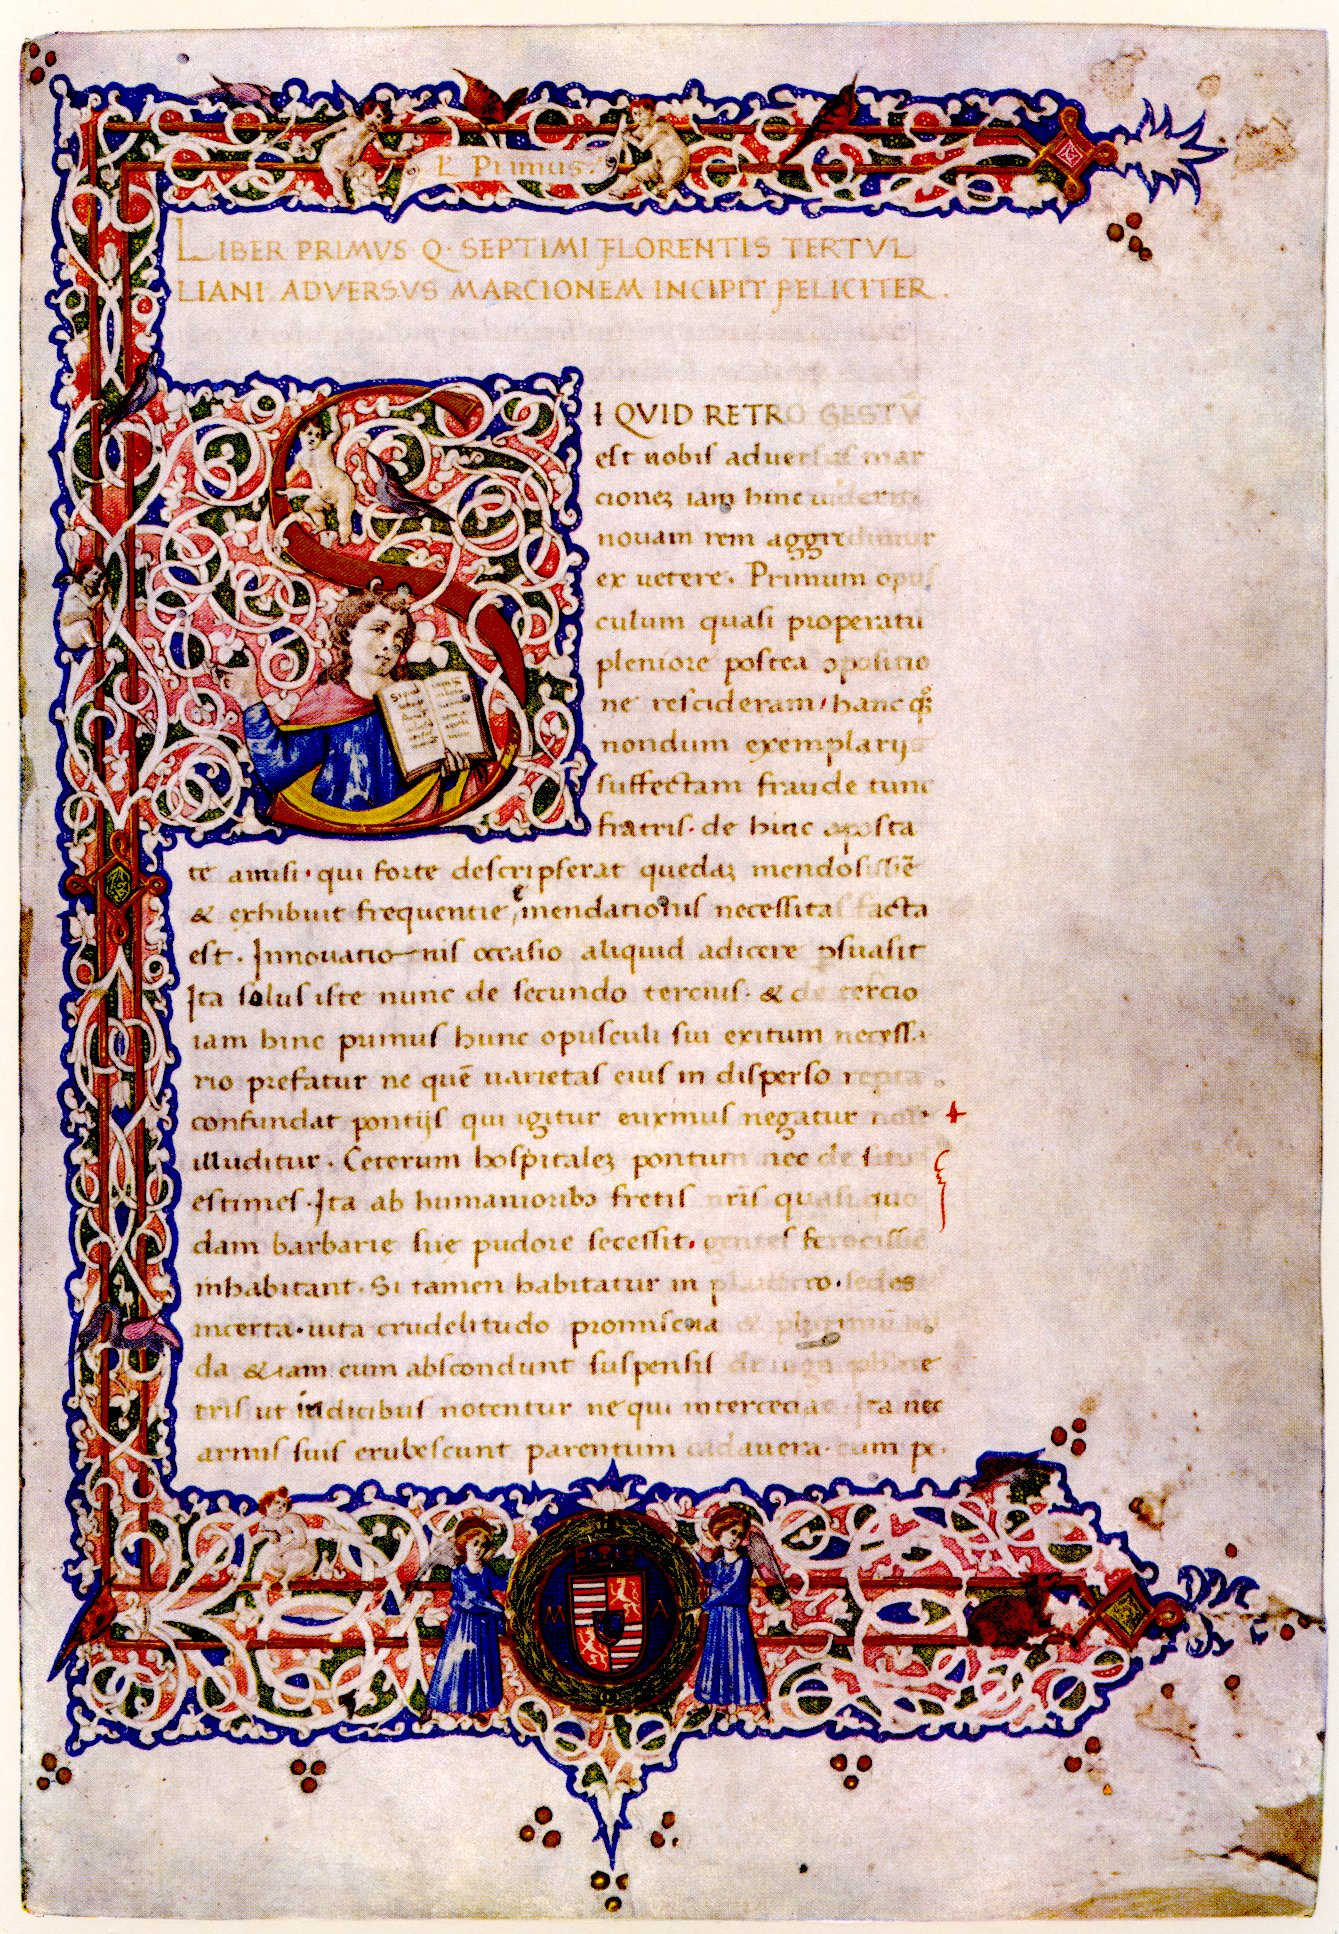 L' Primus.
LIBER PRIMVS Q. SEPTIMI FLORENTIS TERTVL
LIANI ADVERSVS MARCIONEM INCIPIT FELICITER.
SI QVID RETRO GESTV̄
eſt nobiſ aduerſuſ mar
cioneʒ iam hinc uiderit
nouam rem aggredimur
ex uetere. Primum opuſ
culum quaſi properatū
pleniore poſtea opoſitio
ne reſcideram / hanc qꝫ
nondum exemplarijſ
ſuffectam fraude tunc
fratriſ. de hinc apoſta
te amiſi. qui forte deſcripſerat quedaʒ mendoſiſſiē
& exhibuit frequentie, emendationiſ neceſſitaſ facta
eſt. Innouatio-niſ occaſio aliquid adicere pſuaſit
Ita ſoluſ iſte nunc de ſecundo terciuſ. & de tercio
iam hinc primuſ hunc opuſculi ſui exitum neceſſa
rio prefatur ne quē uarietaſ eiuſ in diſperſo repta
confundat pontijſ qui igitur euxinuſ negatur
illuditur. Ceterum hoſpitaleʒ pontum nec de ſitu
eſtimeſ. Ita ab humanioribꝰ fretiſ nr̄iſ quaſi quo
dam barbarię ſuę pudore ſeceſſit. genteſ ferociſſiē
inhabitant. Si tamen habitatur in plauſtro. ſedes
incerta. uita crudelitudo promiſcua &
da & iam cum abſcondunt ſuſpenſiſ de iugo
triſ ut indicibuſ notentur ne qui intercedat. Ita nec
armiſ ſuiſ erubeſcunt parentum cum pe.
M A